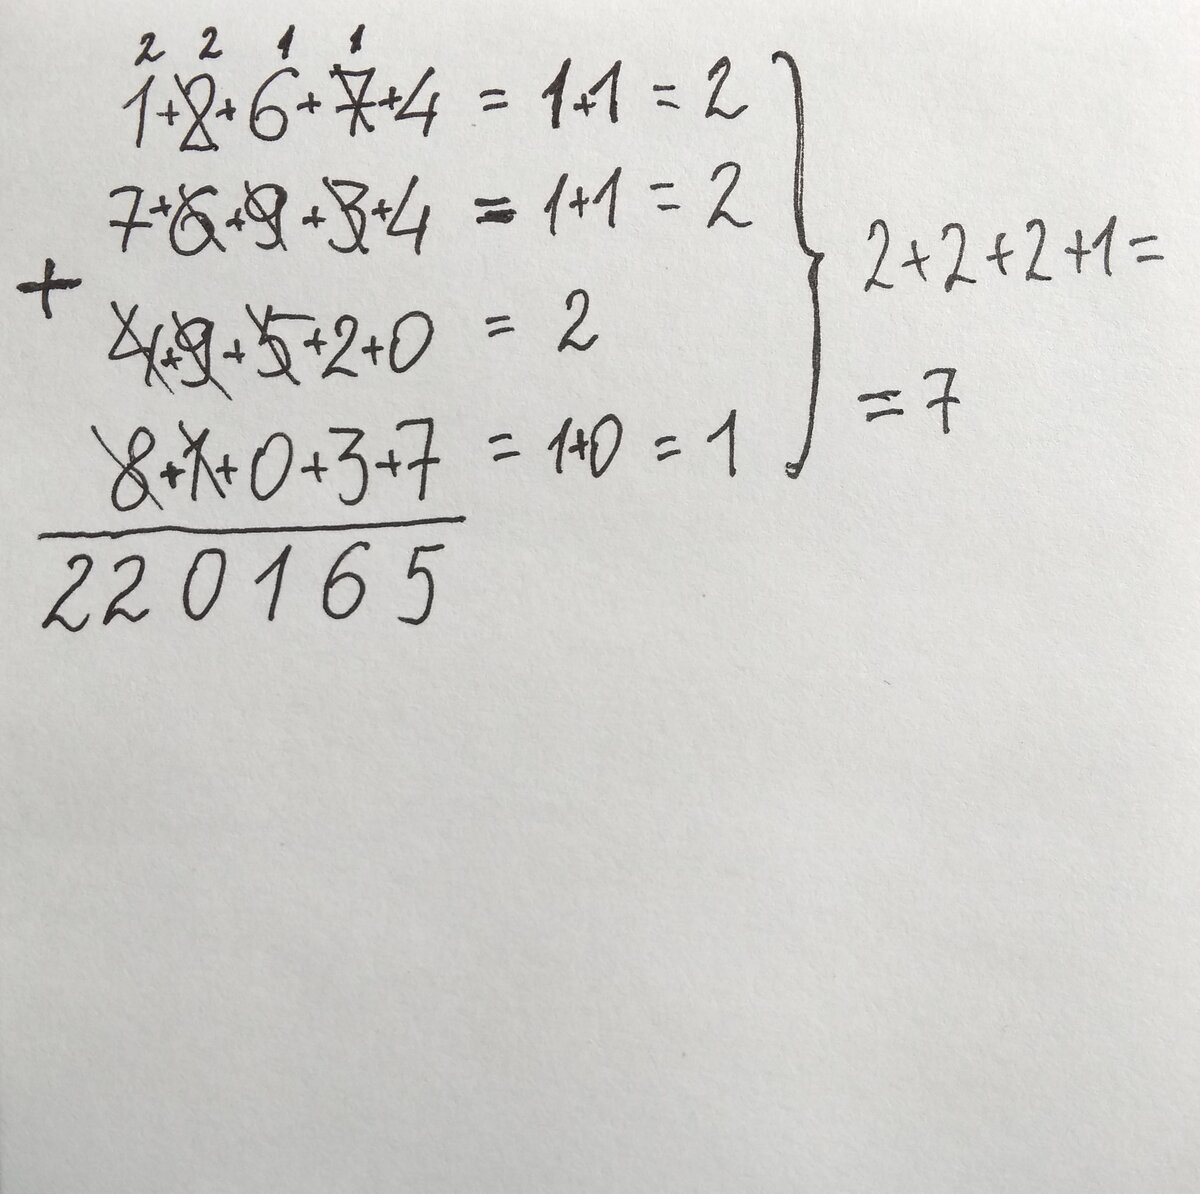 2 2 1 1
1+2+6+7+4 = 1+1 = 2
7+6+9+3+4 = 1+1 = 2
2+2+2+1=
+
4+9+5+2+0 = 2
= 7
8+1+0+3+7 = 1+0 = 1
220165